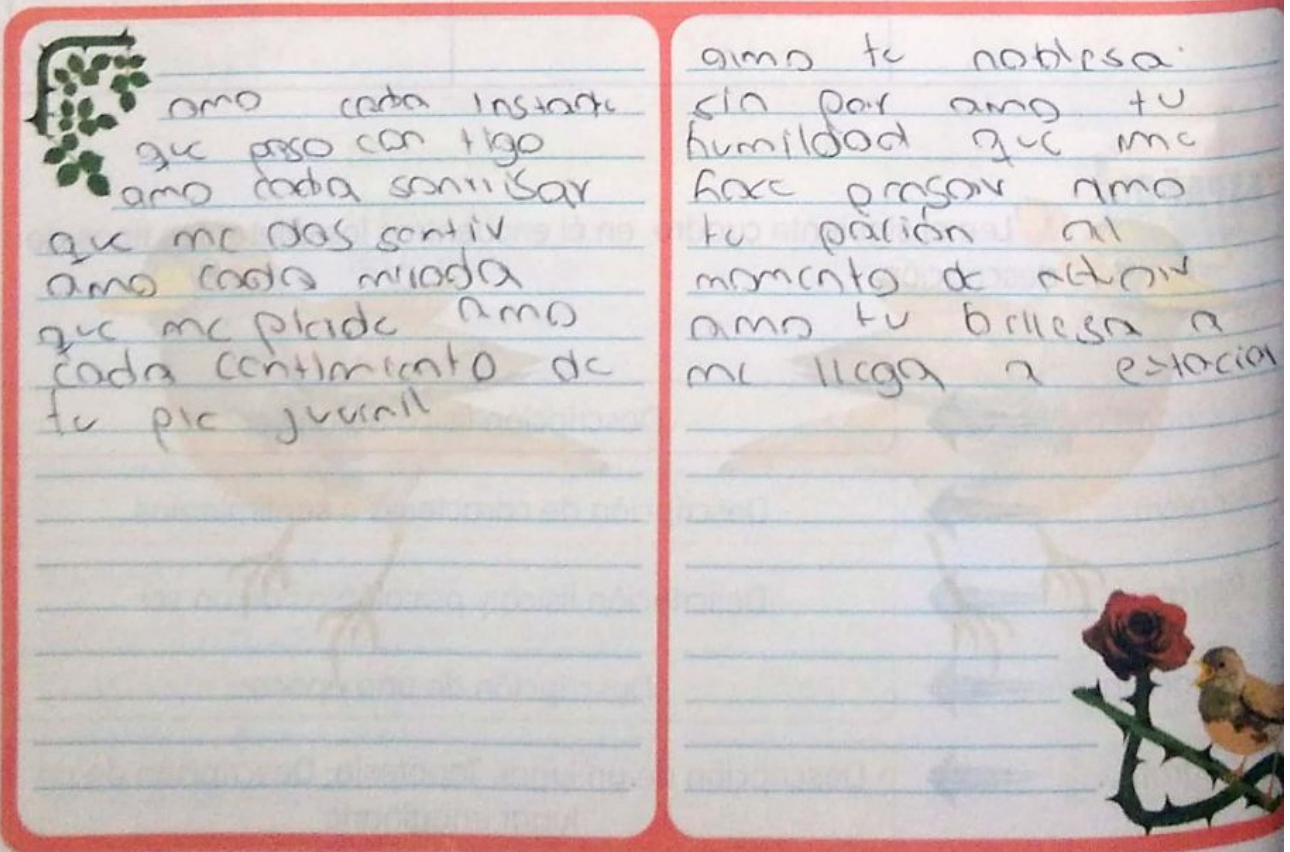 amo cada instante
que paso con tigo
amo cada sonrrisar
que me das sentir
amo cada mirada
que me plade amo
cada centimiento de
tu pie juvenil
amo tu noblesa
sin par amo tu
humildad que me
hace pensar amo
tu páción al
momento de actuar
amo tu bellesa a
me llega a estaciar